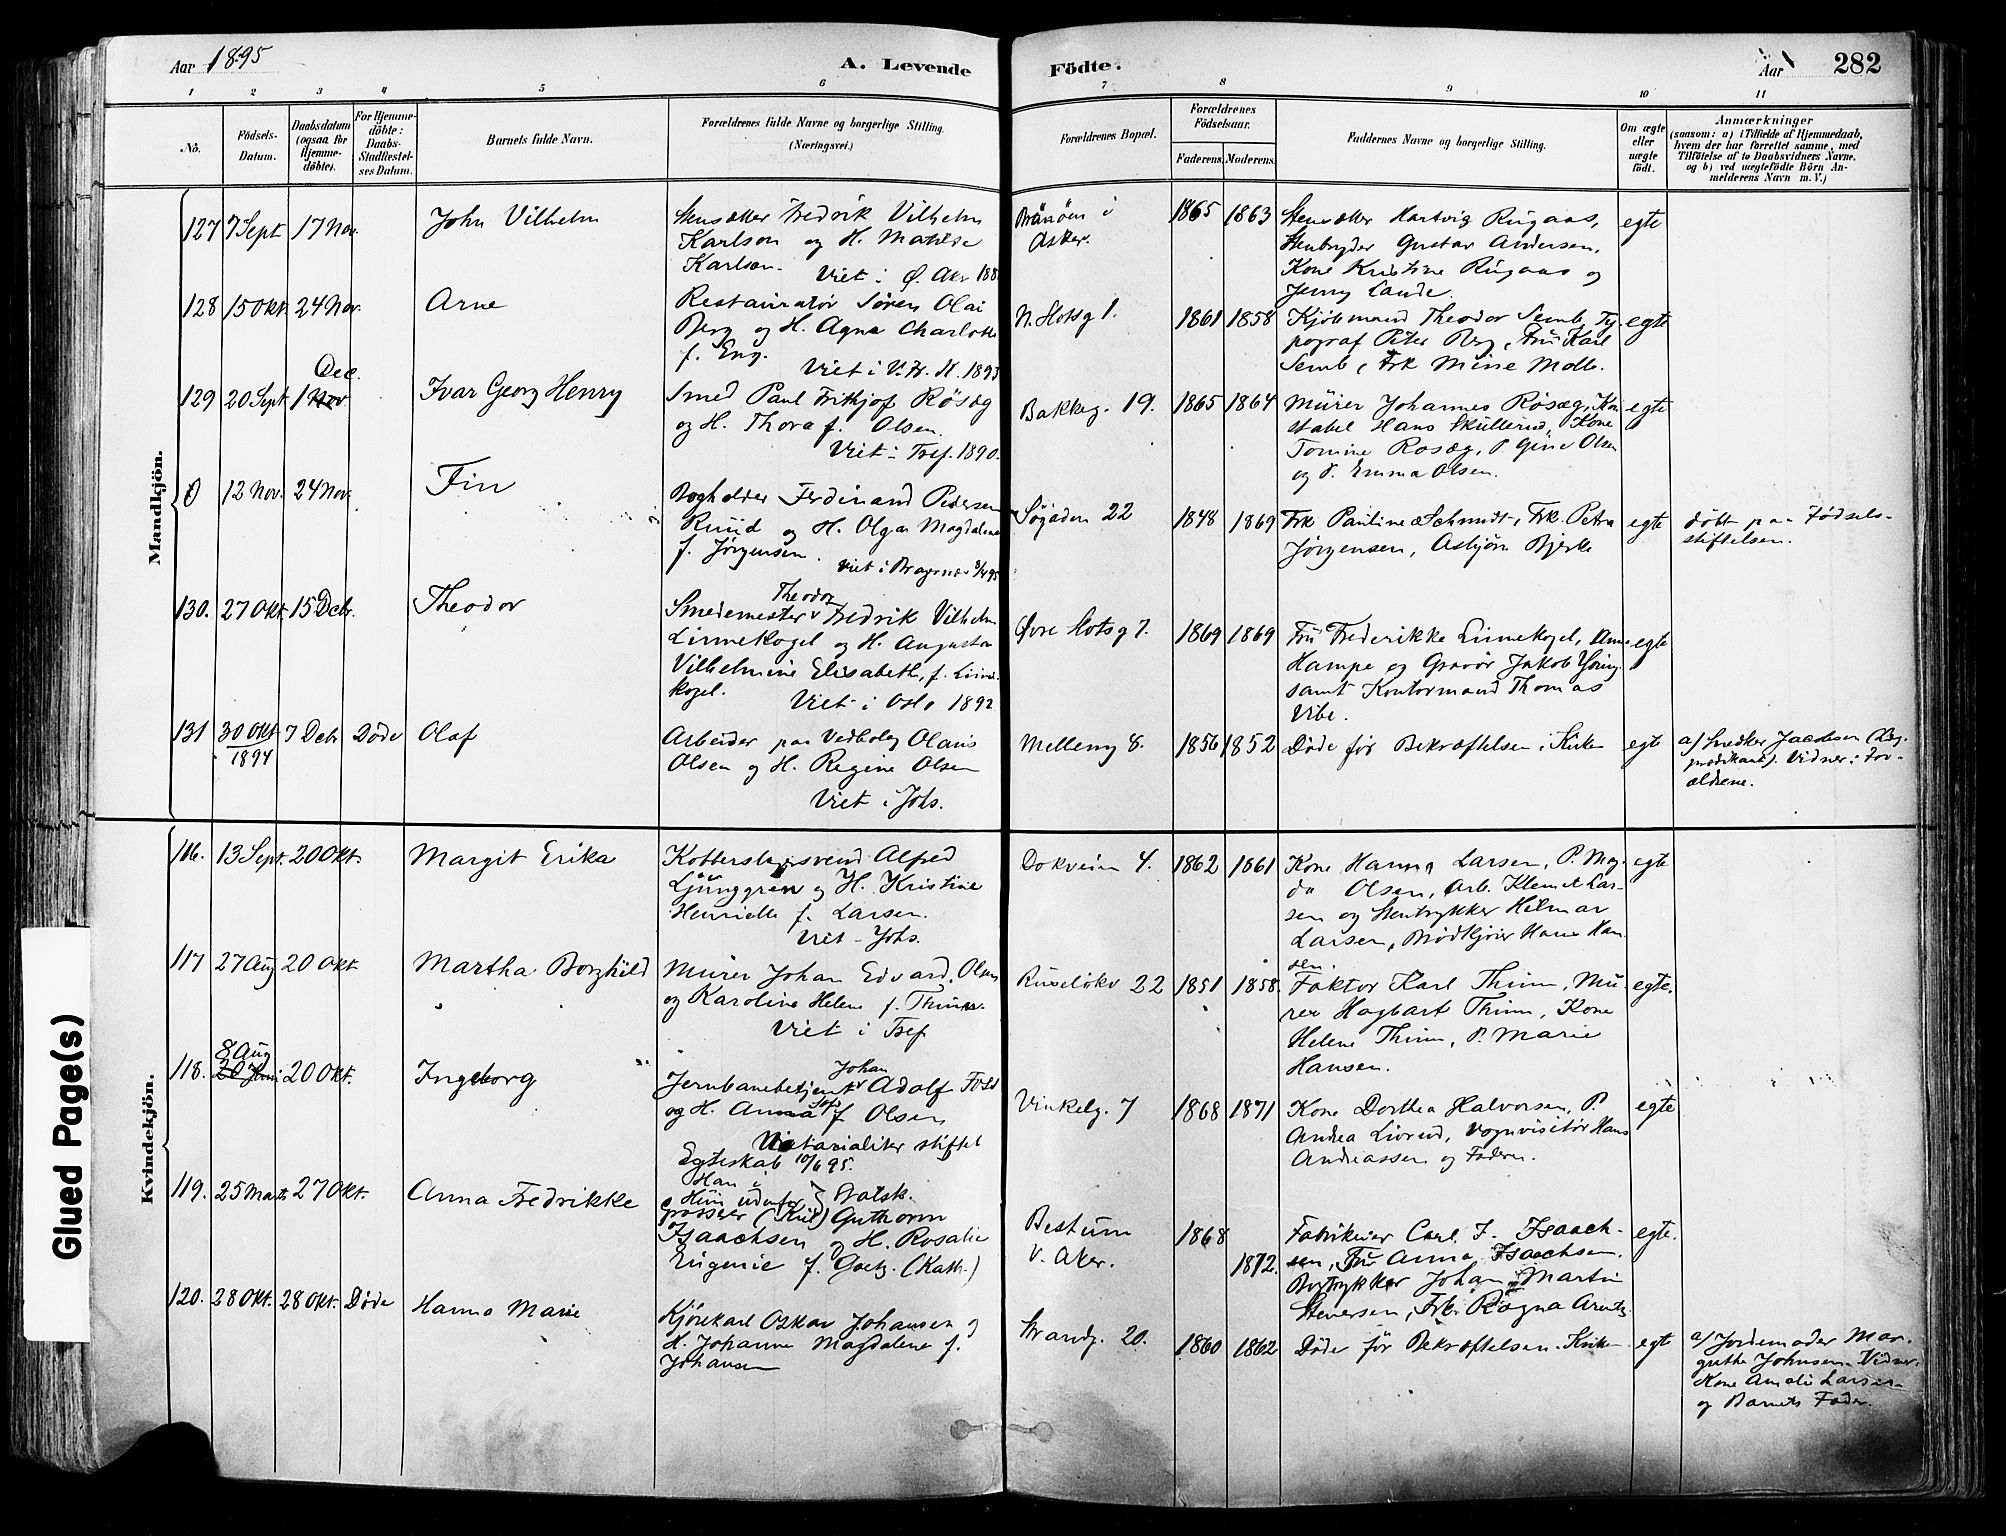 Aar 1895
A. Levende
Födte.
Aar
282
1 2 3 4 5 6 7 8 9 10 11
No.
Födsels-Datum.
Daabsdatum (ogsaa for Hjemmedöbte).
For Hjemmedöbte: Daabs-Stadfæstelses Datum.
Barnets fulde Navn.
Forældrenes fulde Navne og borgerlige Stilling.
(Næringsvei.)
Forældrenes Bopæl.
Forældrenes Födselsaar.
Faderens. Moderens.
Faddernes Navne og borgerlige Stilling.
Om ægte eller uægte födt.
Anmærkninger
(saasom: a) i Tilfælde af Hjemmedaab,
hvem der har forrettet samme, med
Tilföielse af to Daabsvidners Navne,
og b) ved uægtefödte Börn Anmelderens Navn m. V.)
Mandkjön.
127 7 Sept 17 Nov. John Vilhelm
Fredrik Vilhelm
Karlson og H. Matilde
Karlson. Viet i Ø. Aker 188
i
Asker.
1865 1863
Hartvig Rugaas,
Gustav Andersen,
Kone Kristine Rugaas og
Jenny Lande.
egte
128 15 Okt. 24 Nov. Arne
Restauratør Søren Olai
Berg og H. Agna Charlotte
f. Eng.
Viet i V. Fr. M. 1893
N. Slotsg 1.
1861 1858
Kjøbmand Theodor Semb, Ty-
pograf Peter Berg, Fru Karl
Semb, Frk Mine Molb.
egte
129 20 Sept. 1 Nov Dec. Ivar Georg Henry
Smed Paul Frithjof Røsæg
og H. Thora f. Olsen.
Viet i Tref. 1890.
Bakkeg. 19.
1865 1864
Murer Johannes Røsæg, Kon
stabel Hans Skullerud, Kone
Tomine Rosæg, P. Gine Olsen
og P. Emma Olsen.
egte
0 12 Nov. 24 Nov. Fin
Bogholder Ferdinand Pedersen
Ruud og H. Olga Magdalena
f. Jørgensen.
Viet i Bragernæs 3/4 95
Søgaden 22
1848 1869
Frk Pauline Schmidt, Frk. Petra
Jørgensen, Asbjørn Bjerke
egte
døbt paa Fødsels-
stiftelsen.
130. 27 Okt. 15 Debr. Theodor
Theodor
Smedemester v Fredrik Vilhelm
Linnekogel og H. Augusta
Vilhelmine Elisabeth, f. Linne
kogel.
Viet i Oslo 1892
Øvre Slotsg 7.
1869 1869
Fru Frederikke Linnekogel,
Hampe og Gravør Jakob Young
samt Kontormand Thomas
Vibe.
egte
131 30 Okt 1894 7 Debr Døde Olaf
Arbeider paa Vedbolag Olaus
Olsen og H. Regine Olsen
Viet i Johs.
Mellemg 8.
1856 1852
Døde før Bekræftelsen i Kirken
egte
a/ Snedker Jacobsen (Læg-
prædikant). Vidner: For-
ældrene.
Kvindekjön.
116. 13 Sept. 20 Okt. Margit Erika
Kobberslagersvend Alfred
Ljunggren og H. Kristine
Henrielle f. Larsen.
Viet - Johs.
Dokveien 4.
1862 1861
Kone Hanna Larsen, P. Mag-
da Olsen, Arb. Klemet Lar-
sen og Stentrykker Hilmar
Larsen, Brødkjører Hans Han
sen.
egte
117 27 Aug 20 Okt Martha Borghild
Murer Johan Edvard Olsen
og Karoline Helene f. Thinn.
Viet i Tref
Ruseløkv 22
1851 1858.
Faktor Karl Thinn, Mu-
rer Hagbart Thinn, Kone
Helene Thinn, P. Marie
Hansen.
egte.
118. 8 Aug 20 Juni 20 Okt. Ingeborg
Johan
Jernbanebetjent v Adolf Foss
og H. Anna Sofi f Olsen
Notarialiter stiftet
Egteskab 10/6 95.
Vinkelg. 7
1868 1871
Kone Dorthea Halvorsen, P.
Andrea Livrud, Vognvisitør Hans
Andreassen og Faderen.
egte
119. 25 Marts 27 Okt. Anna Fredrikke
Han i
Hun udenfor } Statsk.
Guthorm
Isaachsen og H. Rosalie
Eugenie f. Goetz. (Kath.)
Bestum
V. Aker.
1868 1872.
Fabrikeier Carl I. Isaach-
sen, Fru Anna Isaachsen.
Bogtrykker Johan Martin
Stenersen, Frk. Ragna Arentz.
egte.
120. 28 Okt. 28 Okt. Døde Hanna Marie
Kjørekarl Oskar Johansen og
H. Johanne Magdalene f.
Johansen
Strandg. 20.
1860 1862
Døde før Bekræftelsen i Kirken
egte
a/ Jordemoder Mar-
grethe Johnsen. Vidner
Kone Amalie Larsen
og Barnets Fader.
Glued Page(s)